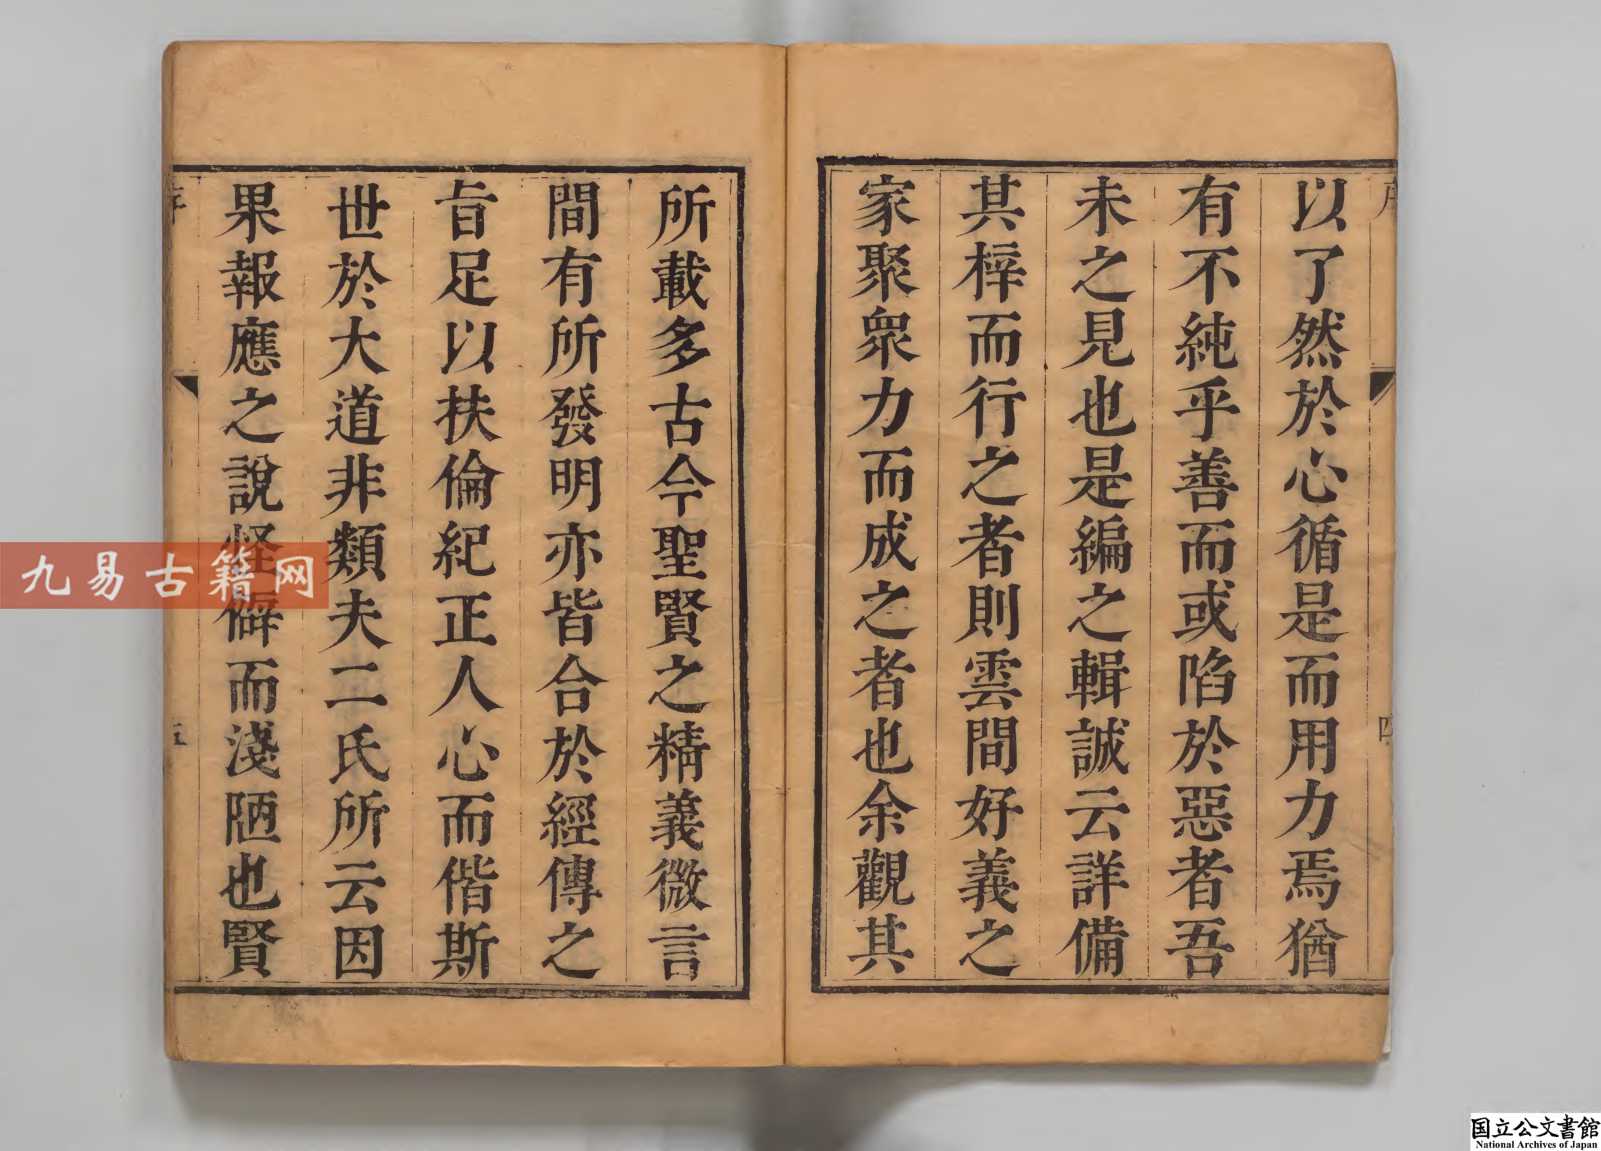 以了然於心循是而用力焉猶
有不純乎善而或陷於惡者吾
未之見也是編之輯誠云詳備
其梓而行之者則雲間好義之
家聚衆力而成之者也余觀其
所載多古今聖賢之精義微言
間有所發明亦皆合於經傳之
旨足以扶倫紀正人心而偕斯
世於大道非類夫二氏所云因
果報應之說怪僻而淺陋也賢
五
九易古籍网
国立公文書館
National Archives of Japan